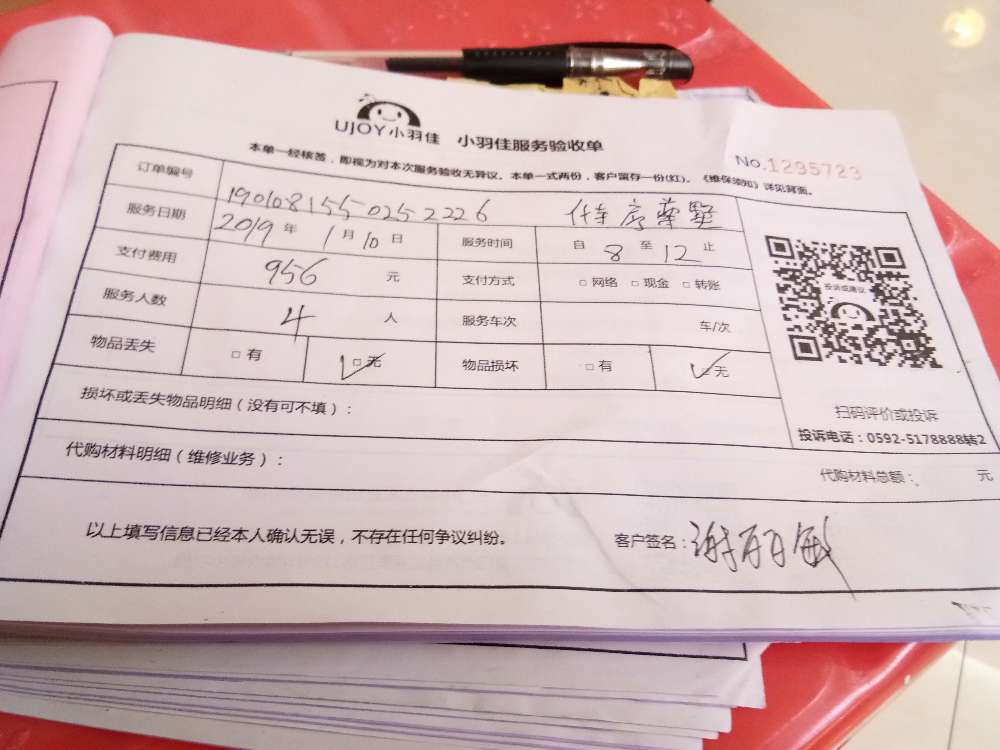 UJOY小羽佳 小羽佳服务验收单
本单一经核签，即视为对本次服务验收无异议。本单一式两份，客户留存一份(红)。《维保须知》详见背面。
No.1295723
订单编号 1901081550252226
服务日期 2019 年 1 月 10 日 服务时间 自 8 至 12 止
支付费用 956 元 支付方式 □ 网络 □ 现金 □ 转账
服务人数 4 人 服务车次 车/次
物品丢失 □ 有 ☑ 无 物品损坏 □ 有 ☑ 无
投诉或建议
扫码评价或投诉
投诉电话：0592-5178888转2
损坏或丢失物品明细（没有可不填）：
代购材料明细（维修业务）： 代购材料总额： 元
以上填写信息已经本人确认无误，不存在任何争议纠纷。 客户签名：谢丽敏